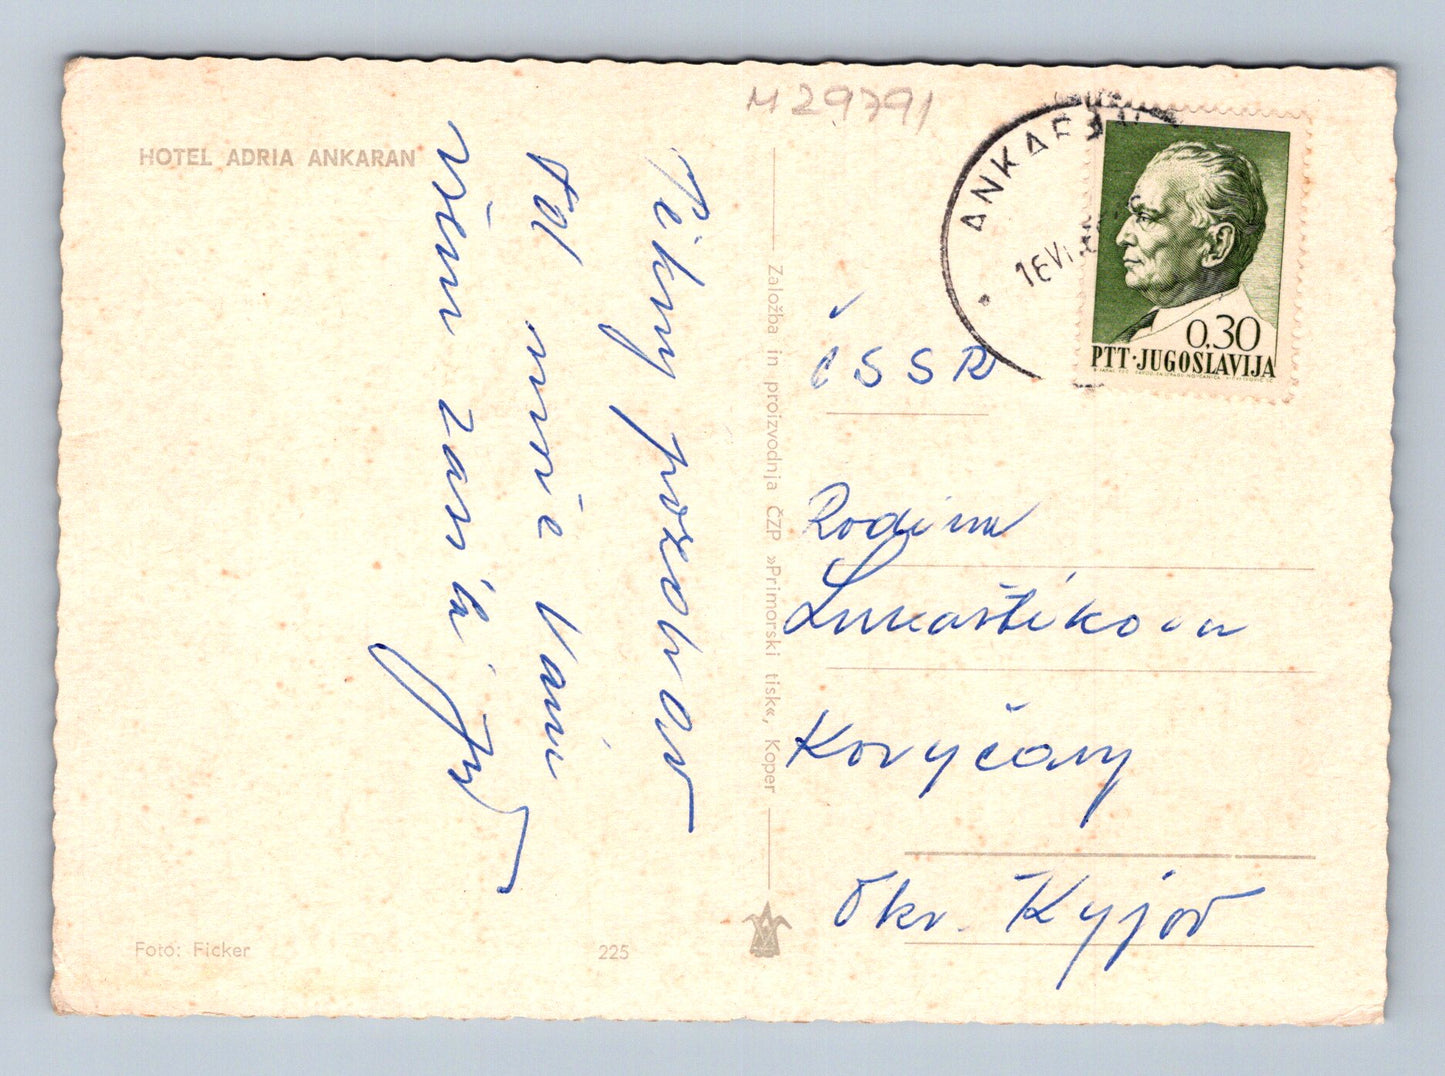 M 29791
HOTEL ADRIA ANKARAN
Pěkný pozdrav
od moře Vám
všem zasílá
Založba in proizvodnja ČZP »Primorski tisk«, Koper
ANKARAN
16 VI
0,30
PTT·JUGOSLAVIJA
ČSSR
Rodina
Lukaštíkova
Koryčany
Okr. Kyjov
Foto: Ficker
225